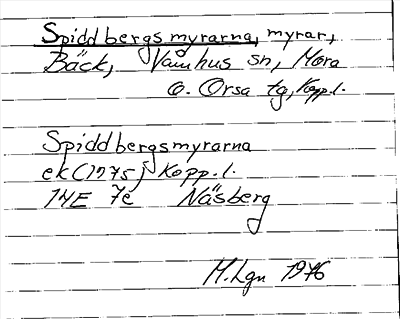 Spiddbergsmyrarna, myrar,
Bäck, Våmhus sn, Mora
o. Orsa tg, Kopp.l.
Spiddbergsmyrarna
ek (1975) Kopp.l.
14E 7e Näsberg
M.Lgn 1976